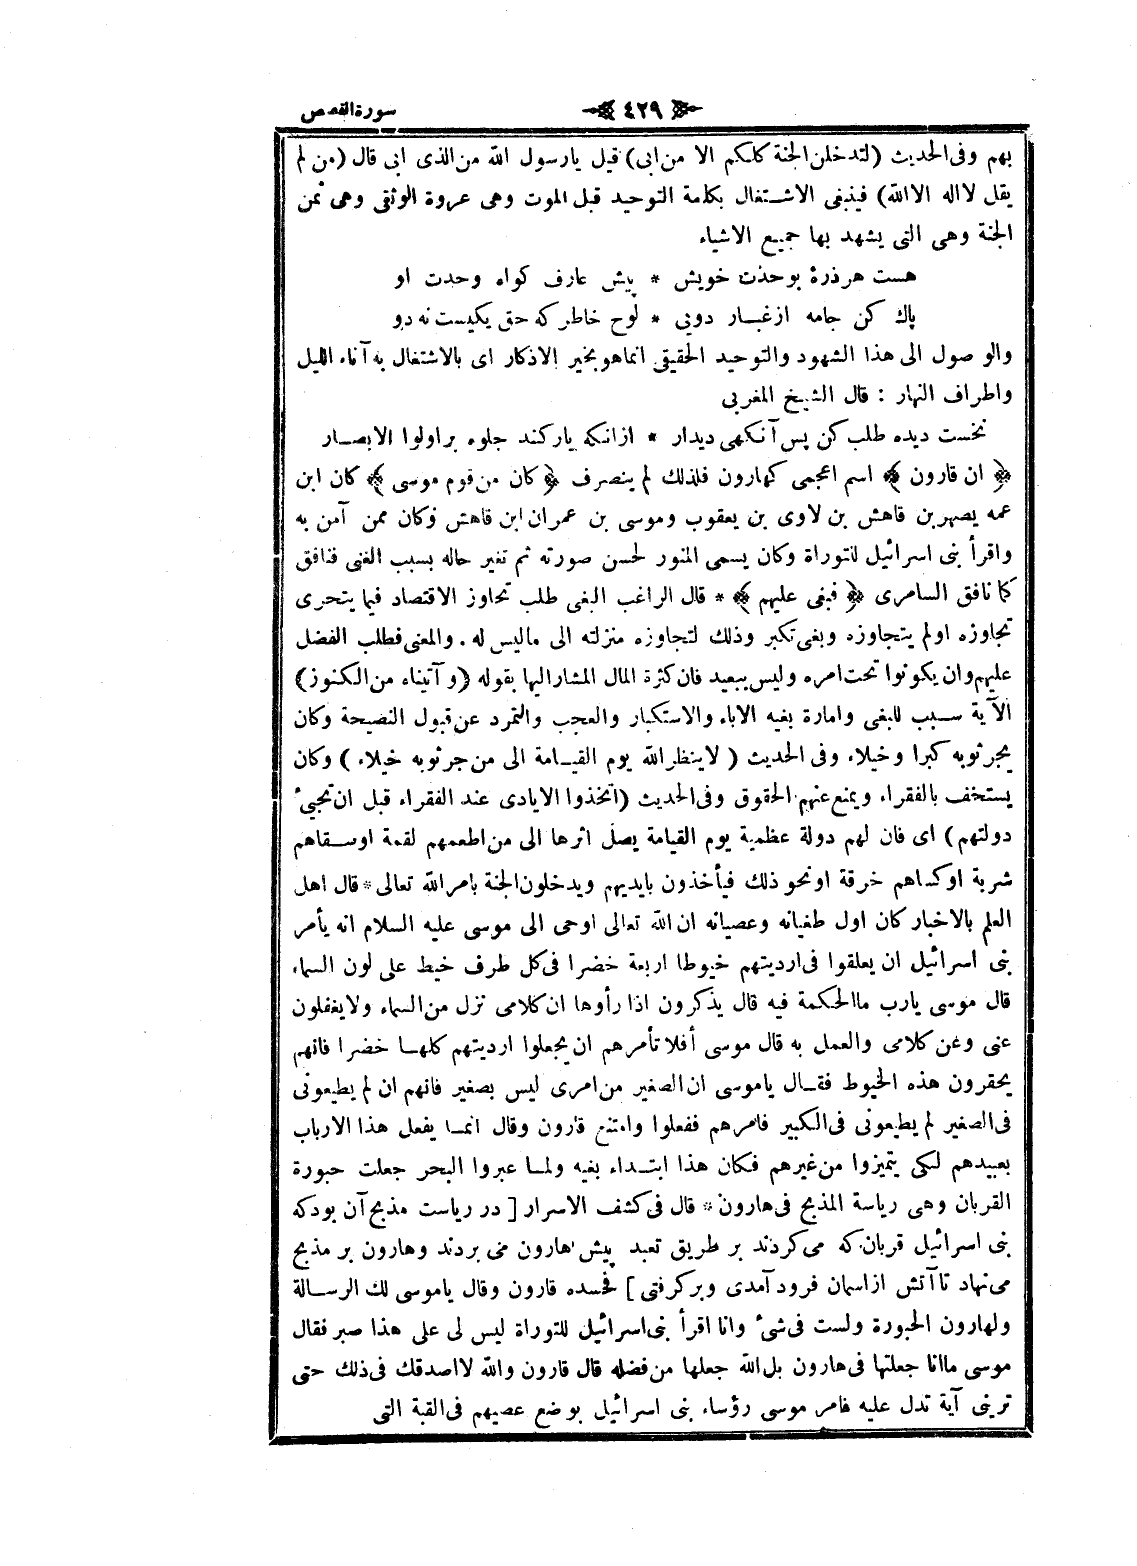 سورة القصص
﴿ ٤٢٩ ﴾
بهم وفى الحديث (لتدخلن الجنة كلكم الا من ابى) قيل يارسول الله من الذى ابى قال (من لم
يقل لااله الاالله) فينبغى الاشــتغال بكلمة التوحيد قبل الموت وهى عروة الوثقى وهى ثمن
الجنة وهى التى يشهد بها جميع الاشياء
هست هرذرهٔ بوحدت خويش * پيش عارف كواه وحدت او
پاك كن جامه ازغبــار دويى * لوح خاطر كه حق يكيست نه دو
والوصول الى هذا الشهود والتوحيد الحقيقى انماهو بخير الاذكار اى بالاشتغال به آناء الليل
واطراف النهار : قال الشيخ المغربى
نخست ديده طلب كن پس آنكهى ديدار * ازانكه ياركند جلوه براولوا الابصــار
﴿ ان قارون ﴾ اسم اعجمى كهارون فلذلك لم ينصرف ﴿ كان من قوم موسى ﴾ كان ابن
عمه يصهر بن قاهش بن لاوى بن يعقوب وموسى بن عمران ابن قاهش وكان ممن آمن به
واقرأ بنى اسرائيل للتوراة وكان يسمى المنور لحسن صورته ثم تغير حاله بسبب الغنى فنافق
كما نافق السامرى ﴿ فبغى عليهم ﴾ * قال الراغب البغى طلب تجاوز الاقتصاد فيما يتحرى
تجاوزه اولم يتجاوزه وبغى تكبر وذلك لتجاوزه منزلته الى ماليس له . والمعنى فطلب الفضل
عليهم وان يكونوا تحت امره وليس ببعيد فان كثرة المال المشار اليها بقوله (وآتيناه من الكنوز)
الآية ســبب للبغى وامارة بغيه الاباء والاستكبار والعجب والتمرد عن قبول النصيحة وكان
يجر ثوبه كبرا وخيلاء وفى الحديث (لاينظر الله يوم القيــامة الى من جر ثوبه خيلاء) وكان
يستخف بالفقراء ويمنع عنهم الحقوق وفى الحديث (اتخذوا الايادى عند الفقراء قبل ان تجيئ
دولتهم) اى فان لهم دولة عظمية يوم القيامة يصل اثرها الى من اطعمهم لقمة اوسـقاهم
شربة اوكساهم خرقة اونحو ذلك فيأخذون بايديهم ويدخلون الجنة بامر الله تعالى * قال اهل
العلم بالاخبار كان اول طغيانه وعصيانه ان الله تعالى اوحى الى موسى عليه السلام انه يأمر
بنى اسرائيل ان يعلقوا فى ارديتهم خيوطا اربعة خضرا فى كل طرف خيط على لون السماء
قال موسى يارب ماالحكمة فيه قال يذكرون اذا رأوها ان كلامى نزل من السماء ولايغفلون
عنى وعن كلامى والعمل به قال موسى أفلا تأمرهم ان يجعلوا ارديتهم كلهــا خضرا فانهم
يحقرون هذه الخيوط فقــال ياموسى ان الصغير من امرى ليس بصغير فانهم ان لم يطيعونى
فى الصغير لم يطيعونى فى الكبير فامرهم ففعلوا وامتنع قارون وقال انمــا يفعل هذا الارباب
بعبيدهم لكى يتميزوا من غيرهم فكان هذا ابتــداء بغيه ولمــا عبروا البحر جعلت حبورة
القربان وهى رياسة المذبح فى هارون * قال فى كشف الاسرار [در رياست مذبح آن بودكه
بنى اسرائيل قربان كه مى كردند بر طريق تعبد پيش هارون مى بردند وهارون بر مذبح
مى نهاد تا آتش ازاسمان فرود آمدى وبركرفتى] فحسده قارون وقال ياموسى لك الرســالة
ولهارون الحبورة ولست فى شئ وانا اقرأ بنى اسرائيل للتوراة ليس لى على هذا صبر فقال
موسى ماانا جعلتها فى هارون بل الله جعلها من فضله قال قارون والله لااصدقك فى ذلك حتى
ترينى آية تدل عليه فامر موسى رؤساء بنى اسرائيل بوضع عصيهم فى القبة التى